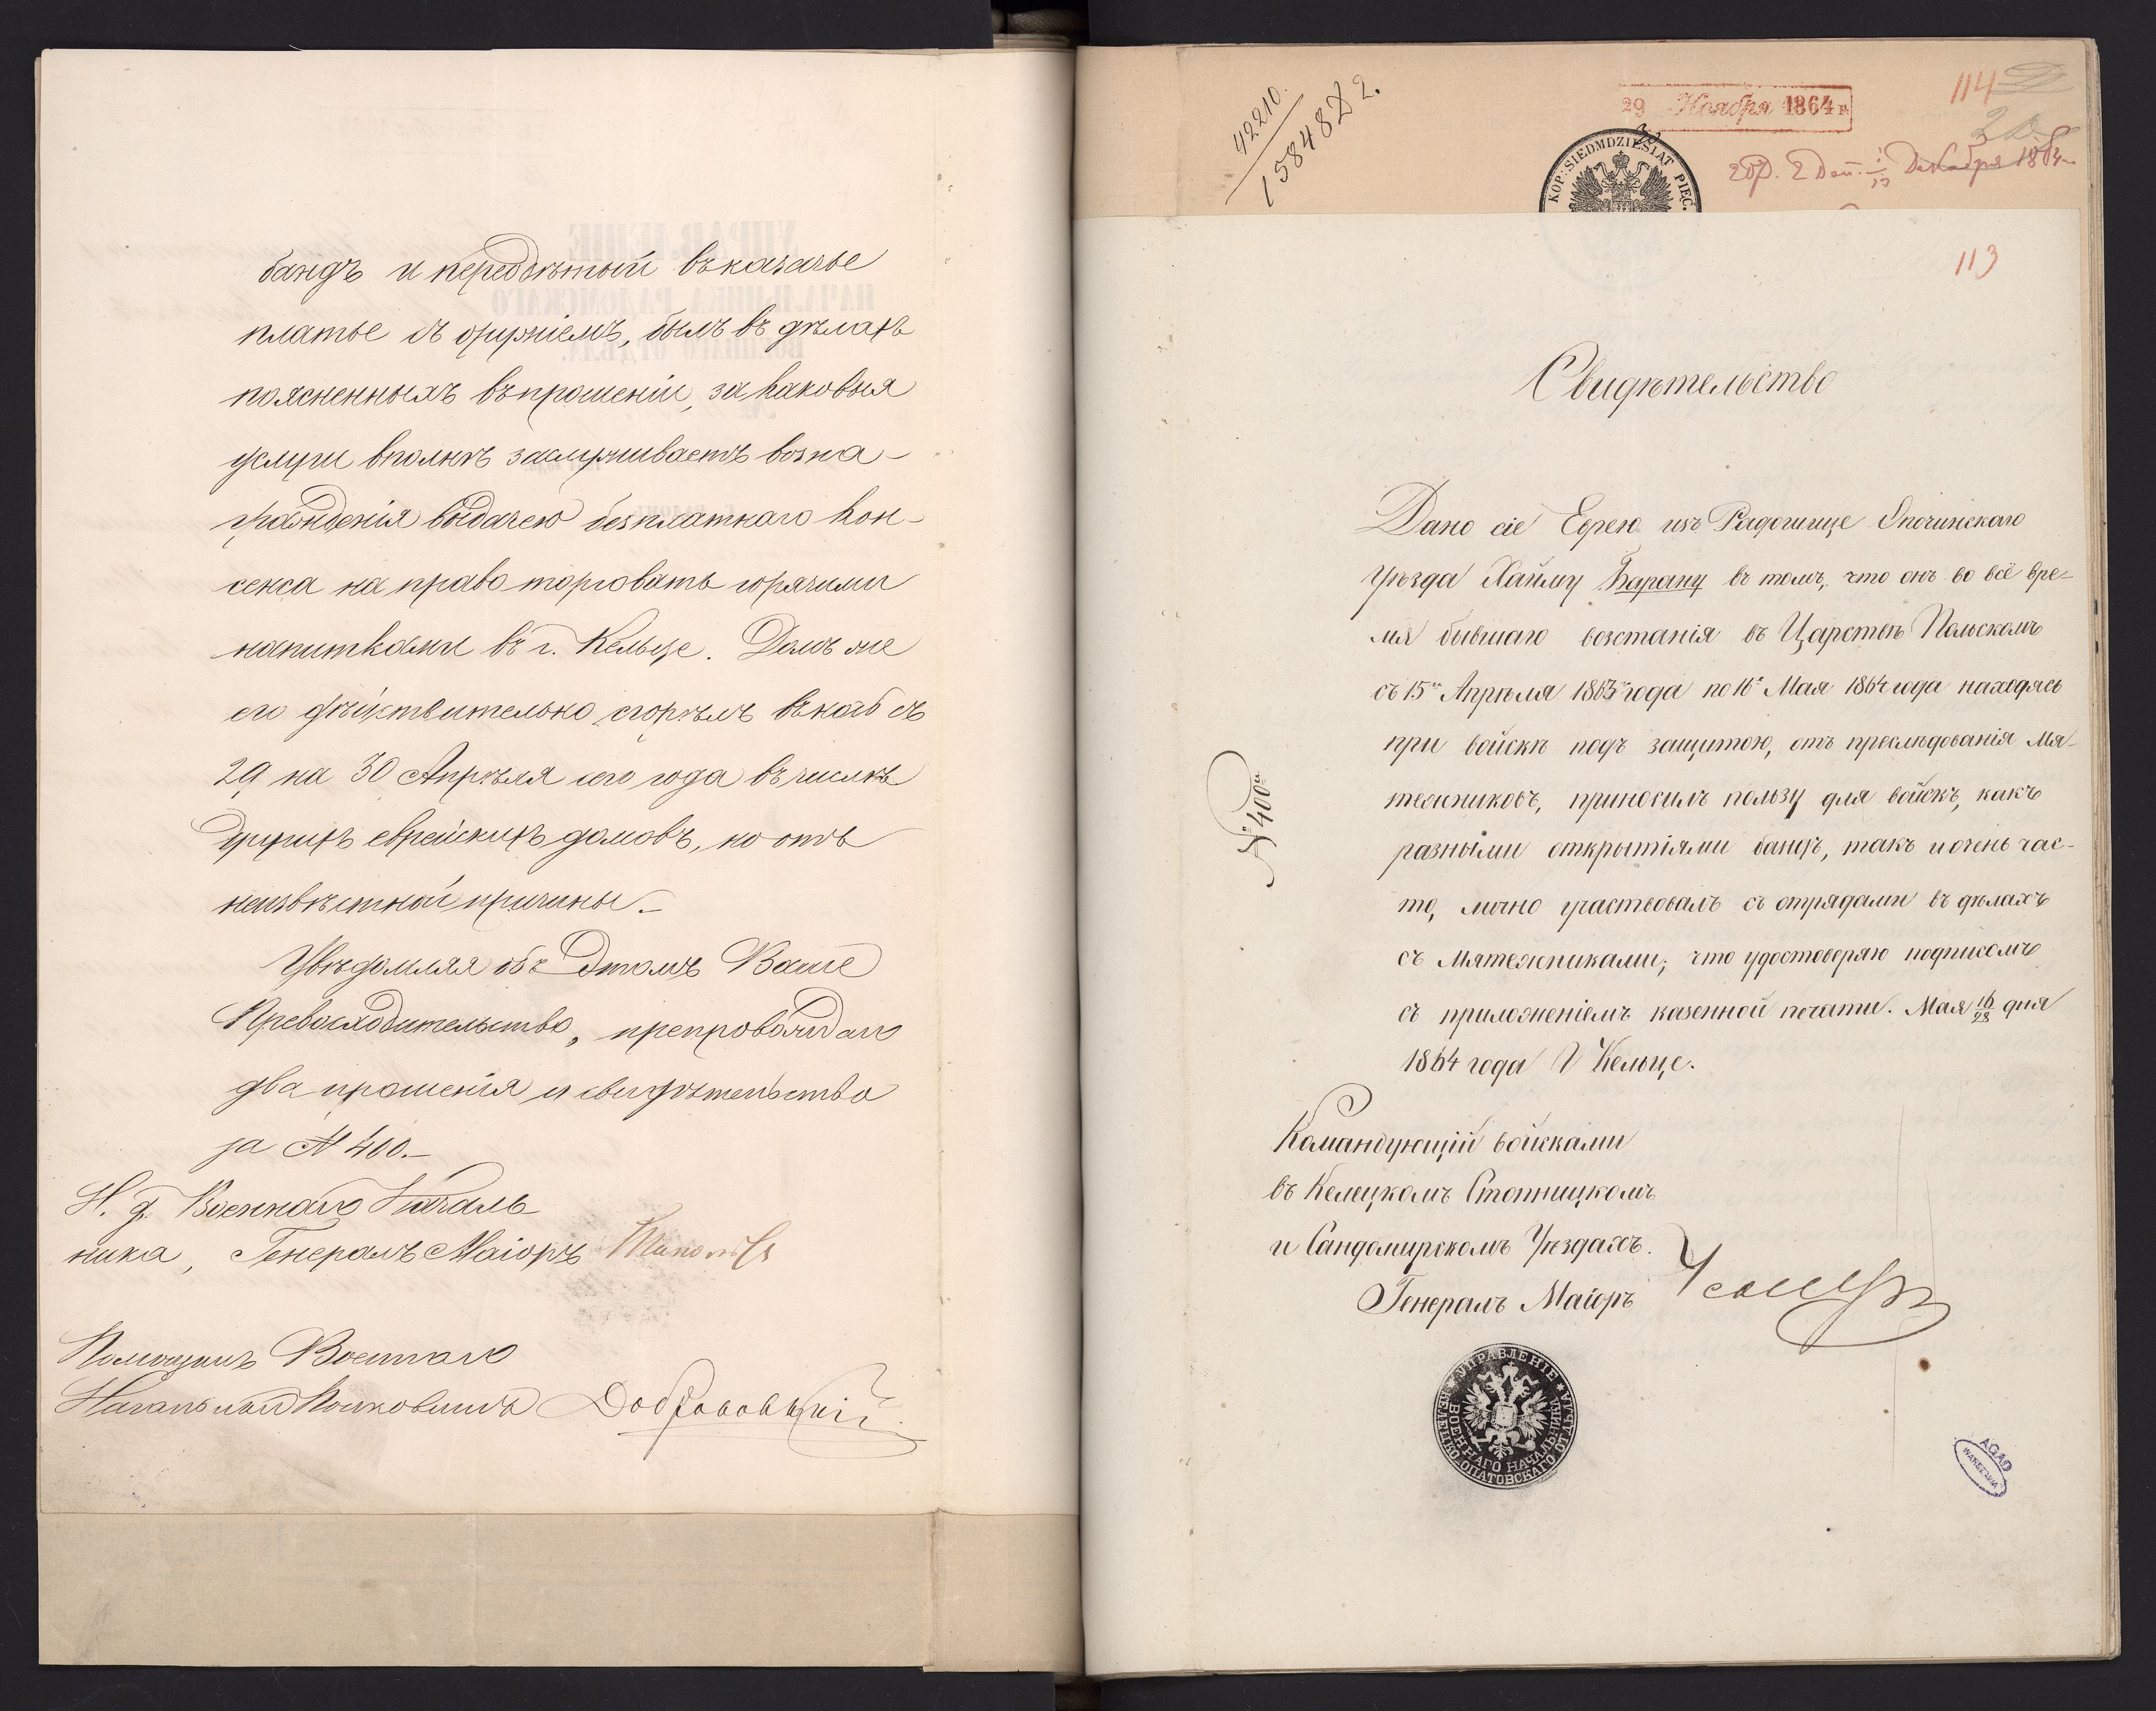 бандъ и переодѣтый въ казачье
платье съ оружіемъ, былъ въ дѣлахъ
поясненныхъ въ прошеніи, за каковыя
услуги вполнѣ заслуживаетъ возна-
гражденія выдачею безплатнаго кон-
сенса на право торговать горячими
напитками въ г. Кельце. Домъ же
его дѣйствительно сгорѣлъ въ ночь съ
29 на 30 Апрѣля сего года въ числѣ
другихъ еврейскихъ домовъ, но отъ
неизвѣстной причины.
Увѣдомляя объ этомъ Ваше
Превосходительство, препровождаю
два прошенія и свидѣтельство
за № 400.
И. д. Военнаго Началь-
ника, Генералъ Маіоръ
Помощникъ Военнаго
Начальника Добровольскій
42210.
158482 2.
29 Ноября 1864 г.
114
KOP: SIEDMDZIESIĄT PIĘĆ.
Декабря 1864
113
Свидѣтельство
Дано сіе Еврею изъ Радошице Опочинскаго
Уѣзда Хаиму Барану въ томъ, что онъ во всё вре-
мя бывшаго возстанія въ Царствѣ Польскомъ
съ 15го Апрѣля 1863 года по 16е Мая 1864 года находясь
при войскѣ подъ защитою, отъ преслѣдованія Мя-
тежниковъ, приносилъ пользу для войскъ, какъ
разными открытіями бандъ, такъ и очень час-
то, лично участвовалъ съ отрядами въ дѣлахъ
съ Мятежниками; что удостоверяю подписомъ
съ приложеніемъ казенной печати. Мая 16/28 дня
1864 года Г Кельце.
№ 400й
Командующій войсками
въ Келецкомъ Стопницкомъ
и Сандомирскомъ Уѣздахъ.
Генералъ Маіоръ
УПРАВЛЕНІЕ ВОЕННАГО НАЧАЛЬНИКА
КЕЛЕЦКО-ОПАТОВСКАГО ОТДѢЛА
AGAD
WARSZAWA